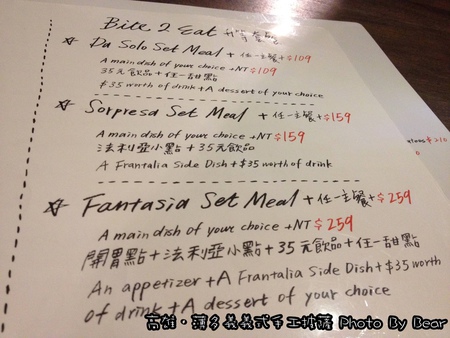 Bite 2 Eat 升等套餐
☆ Da Solo Set Meal + 任一主餐 + $109
A main dish of your choice + NT $109
35元飲品 + 任一甜點
$35 worth of drink + A dessert of your choice
☆ Sorpresa Set Meal + 任一主餐 + $159
A main dish of your choice + NT $159
法利亞小點 + 35元飲品
A Frantalia Side Dish + $35 worth of drink
☆ Fantasia Set Meal + 任一主餐 + $259
A main dish of your choice + NT $259
開胃點 + 法利亞小點 + 35元飲品 + 任一甜點
An appetizer + A Frantalia Side Dish + $35 worth
of drink + A dessert of your choice
高雄・薄多義義式手工披薩 Photo By Bear